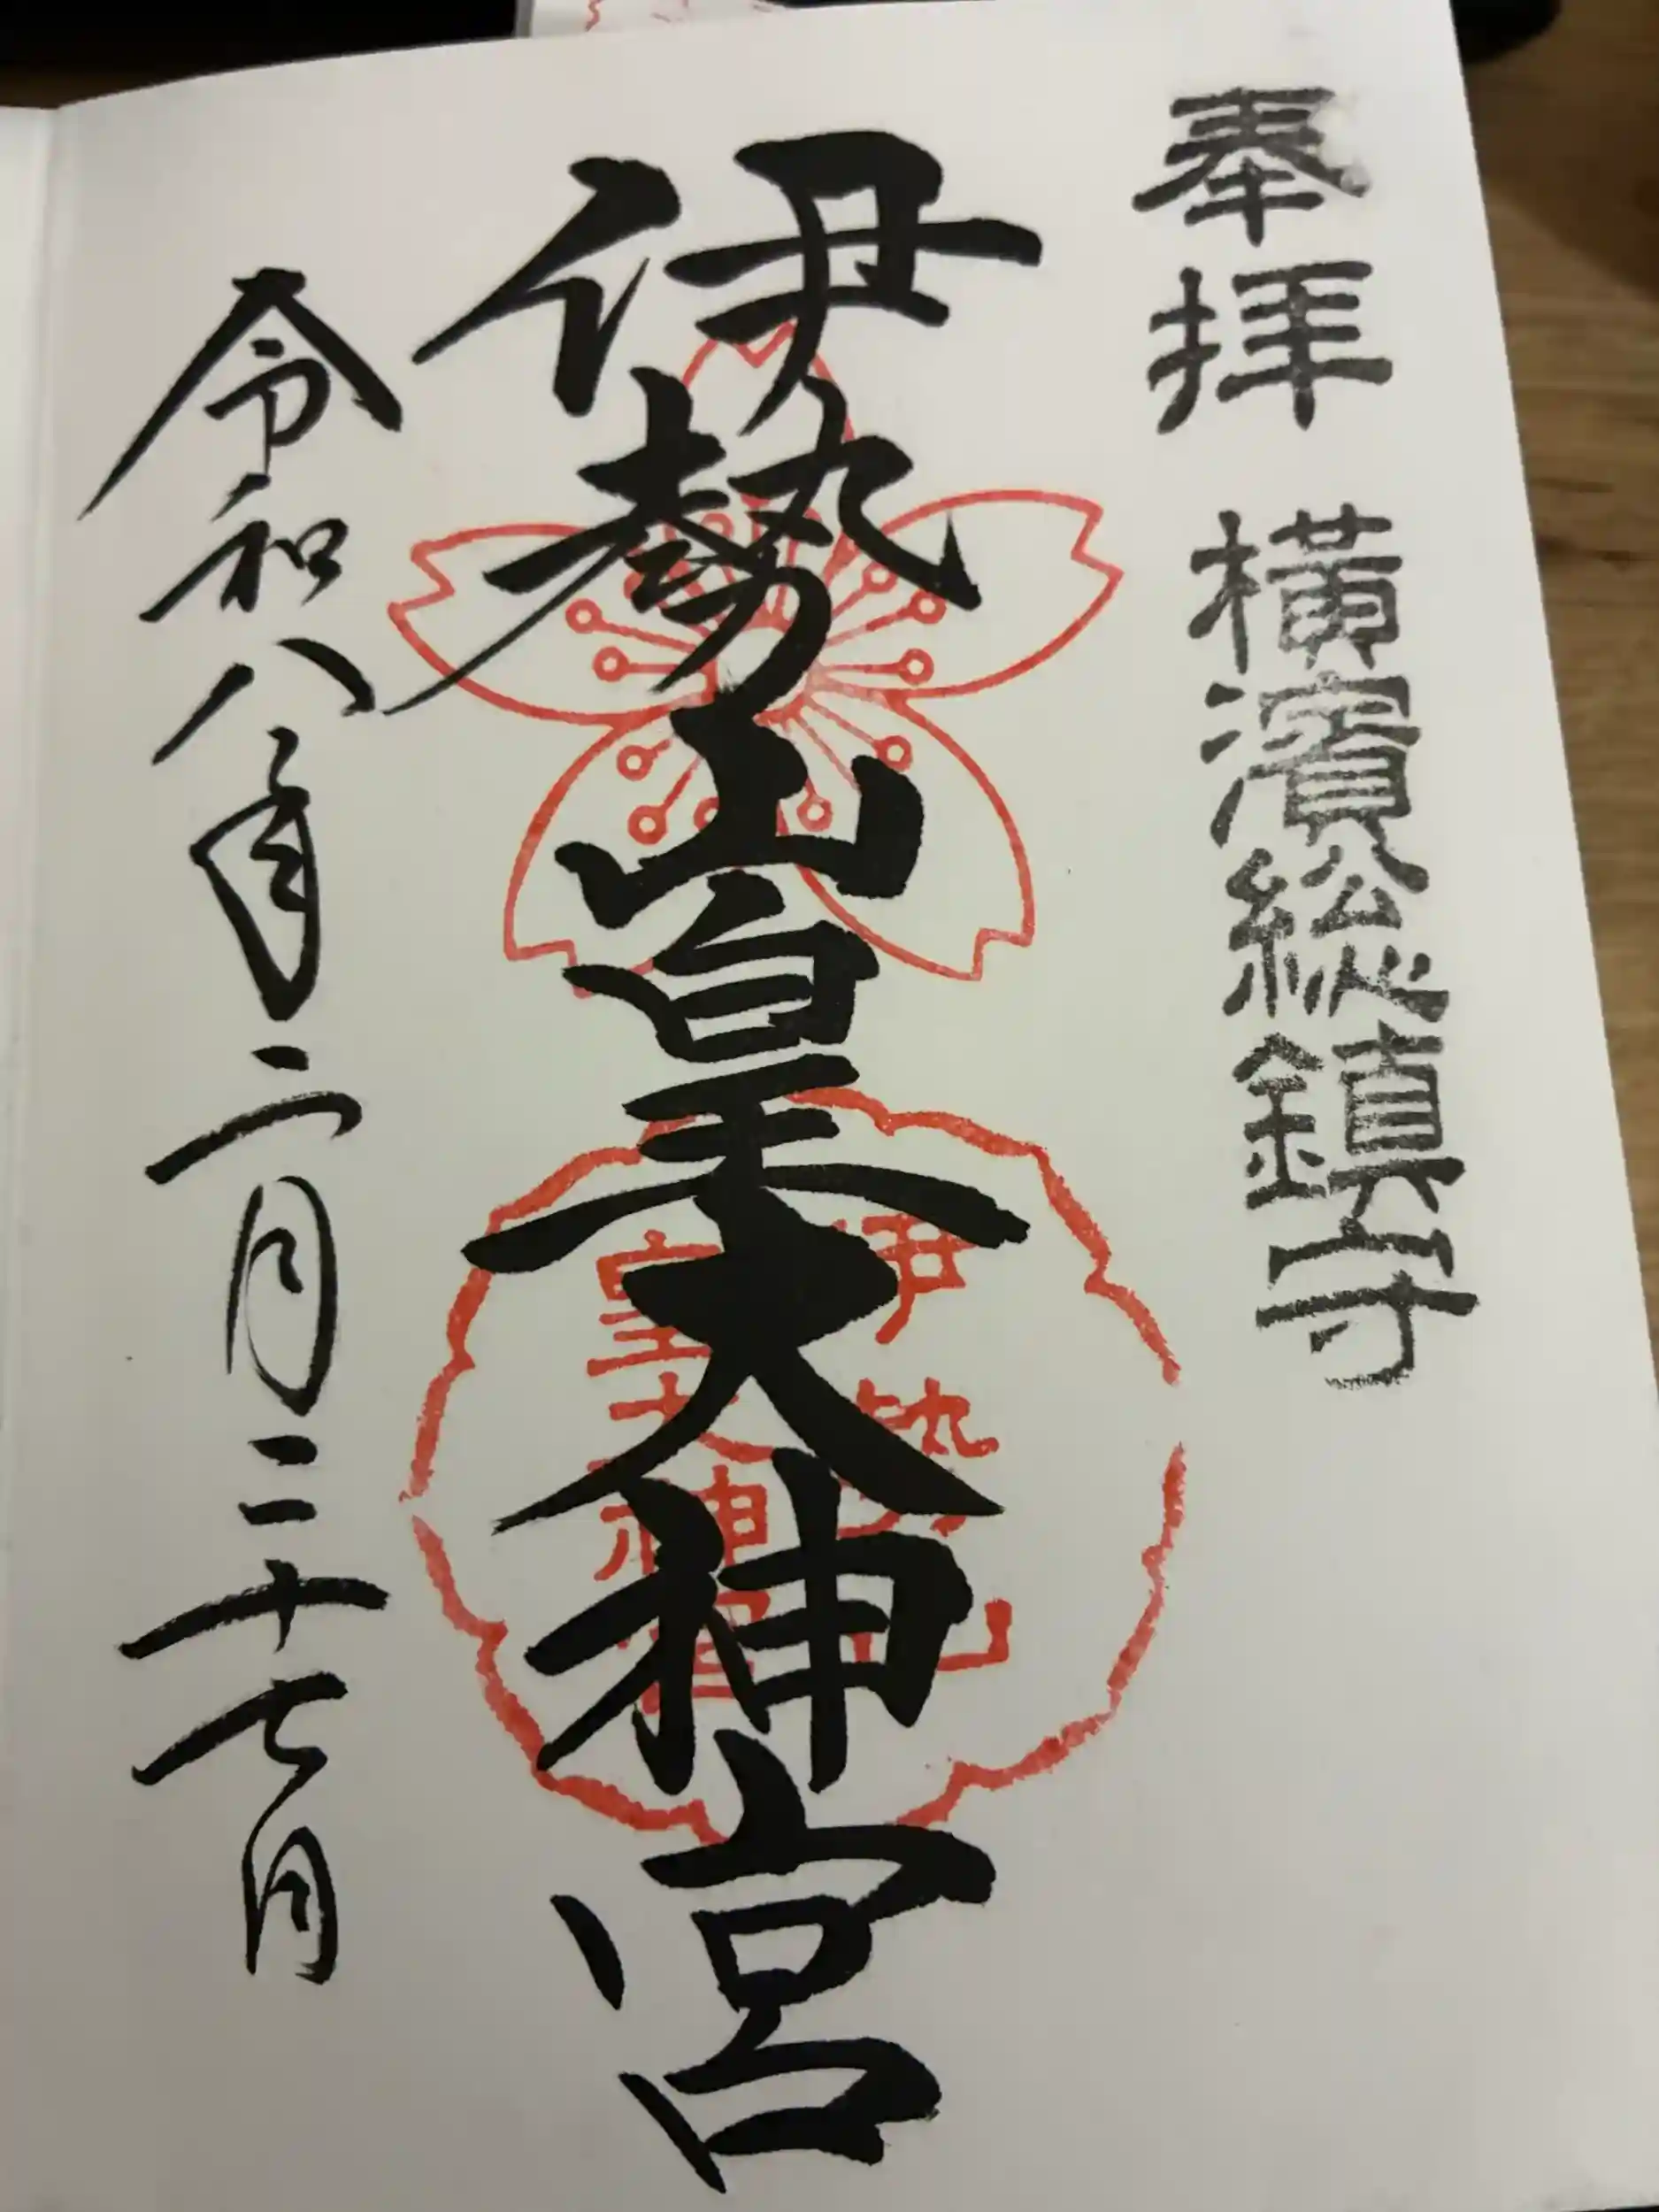 奉拝 横濱総鎮守
伊勢山皇大神宮
伊勢山
皇大神宮
令和八年二月二十七日